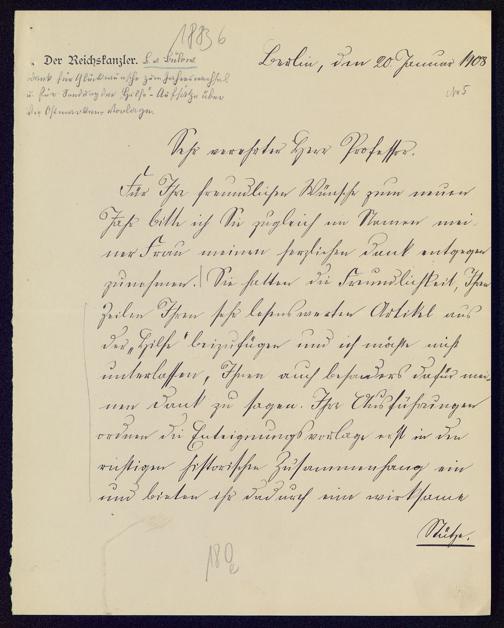 18836
Der Reichskanzler. B. v. Bülow
Dank für Glückwünsche zum Jahreswechsel
u. für Sendung der "Hilfe"-Aufsätze über
die Ostmarkenvorlage.
Berlin, den 20 Januar 1908
Sehr verehrter Herr Professor.
Für Ihre freundlichen Wünsche zum neuen
Jahr bitte ich Sie zugleich im Namen mei-
ner Frau meinen herzlichen Dank entgegen
zunehmen. Sie hatten die Freundlichkeit, Ihren
Zeilen Ihren sehr lesenswerten Artikel aus
der „Hilfe" beizufügen und ich möchte nicht
unterlassen, Ihnen auch besonders dafür mei-
nen Dank zu sagen. Ihre Ausführungen
ordnen die Enteignungsvorlage erst in den
richtigen historischen Zusammenhang ein
und bieten ihr dadurch eine wirksame
Stütze.